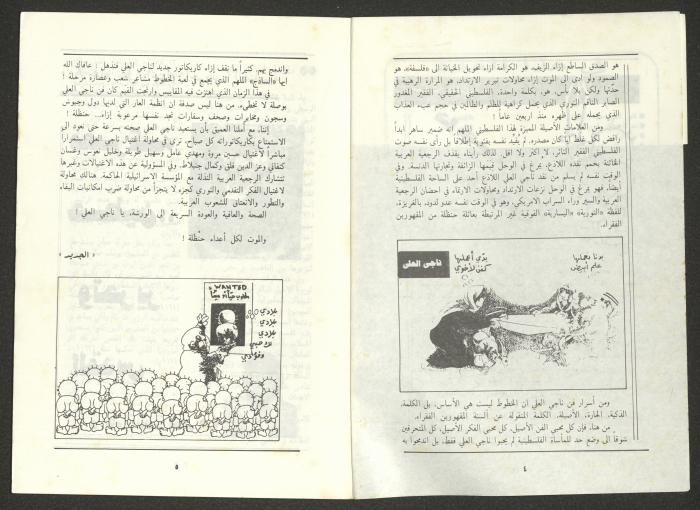 هو الصدق الساطع إزاء الزيف. هو الكرامة ازاء تحويل الخيانة الى «فلسفة». هو
الصمود ولو ادى الى الموت إزاء محاولات تبرير الارتداد. هو المرارة الرهيبة في
حدّتها ولكن بلا يأس. هو، بكلمة واحدة، الفلسطيني الحقيقي، الفقير المغدور
الصابر الناقم الثوري الذي يحمل كراهية للظلم والظالمين في حجم عبء العذاب
الذي يحمله على ظهره منذ اربعين عاماً !
ومن العلامات الأصيلة المميزة لهذا الفلسطيني الملهم انه ضمير ساهر ابداً
رافض لكل غلط أياً كان مصدره. لم يُقيّد نفسه بفئوية إطلاقاً بل رأى نفسه صوت
الفلسطيني الفقير الثائر، لا اكثر ولا اقل. لذلك رأيناه يقذف الرجعية العربية
الخائنة بحمم نقده اللاذع، يمرغ في الوحل قيمها الزائفة وتجارتها الدنسة. وفي
الوقت نفسه لم يسلم من نقد ناجي العلي اللاذع أحد على الساحة الفلسطينية
أيضاً. فهو يمرغ في الوحل نزعات الارتداد ومحاولات الارتماء في احضان الرجعية
العربية والسير وراء السراب الامريكي. وهو في الوقت نفسه عدو لدود، بالغريزة،
للفظة «الثورية» «اليسارية» الفوقية غير المرتبطة بعائلة حنظلة من المقهورين
الفقراء.
ناجي العلي
بدّي أحملها
كفن لأخوي
بدنا نحملها
علم أبيض
ومن أسرار فن ناجي العلي ان الخطوط ليست هي الأساس، بل الكلمة.
الذكية. الحارة. الأصيلة. الكلمة المنقولة عن ألسنة المقهورين الفقراء.
من هنا، فإن كل محبي الفن الأصيل، كل محبي الفكر الأصيل، كل المتحرقين
شوقا الى وضع حد للمأساة الفلسطينية لم يحبوا ناجي العلي فقط، بل اندمجوا به
٤
واندمج بهم. كثيراً ما نقف إزاء كاريكاتور جديد لناجي العلي فنذهل : عافاك الله
ايها «الساذج» الملهم الذي يجمع في لعبة الخطوط مشاعر شعب وعصارة مرحلة !
في هذا الزمان الذي اهتزت فيه المقاييس وارتجت القيم كان فن ناجي العلي
بوصلة لا تخطىء. من هنا ليس صدفة ان انظمة العار التي لديها دول وجيوش
وسجون ومخابرات وصحف وسفارات تجد نفسها مرعوبة إزاء.. حنظلة !
إننا، مع أملنا العميق بأن يستعيد ناجي العلي صحته بسرعة حتى نعود الى
الاستمتاع بكاريكاتوراته كل صباح، نرى في محاولة اغتيال ناجي العلي استمراراً
مباشراً لاغتيال حسين مروة ومهدي عامل وسهيل طويلة وخليل نعوس وغسان
كنفاني وعز الدين قلق وكمال جنبلاط. وفي المسؤولية عن هذه الاغتيالات وغيرها
تتشارك الرجعية العربية النذلة مع المؤسسة الاسرائيلية الحاكمة. هنالك محاولة
لاغتيال الفكر التقدمي والثوري كجزء لا يتجزأ من محاولة ضرب امكانيات البقاء
والتطور والانعتاق للشعوب العربية.
الصحة والعافية والعودة السريعة الى الورشة، يا ناجي العلي !
والموت لكل أعداء حنْظلة !
« الجديد »
WANTED
مطلوب حيّاً أو ميتاً
بلادي
بلادي
بلادي
لك حبي
وفؤادي
٥